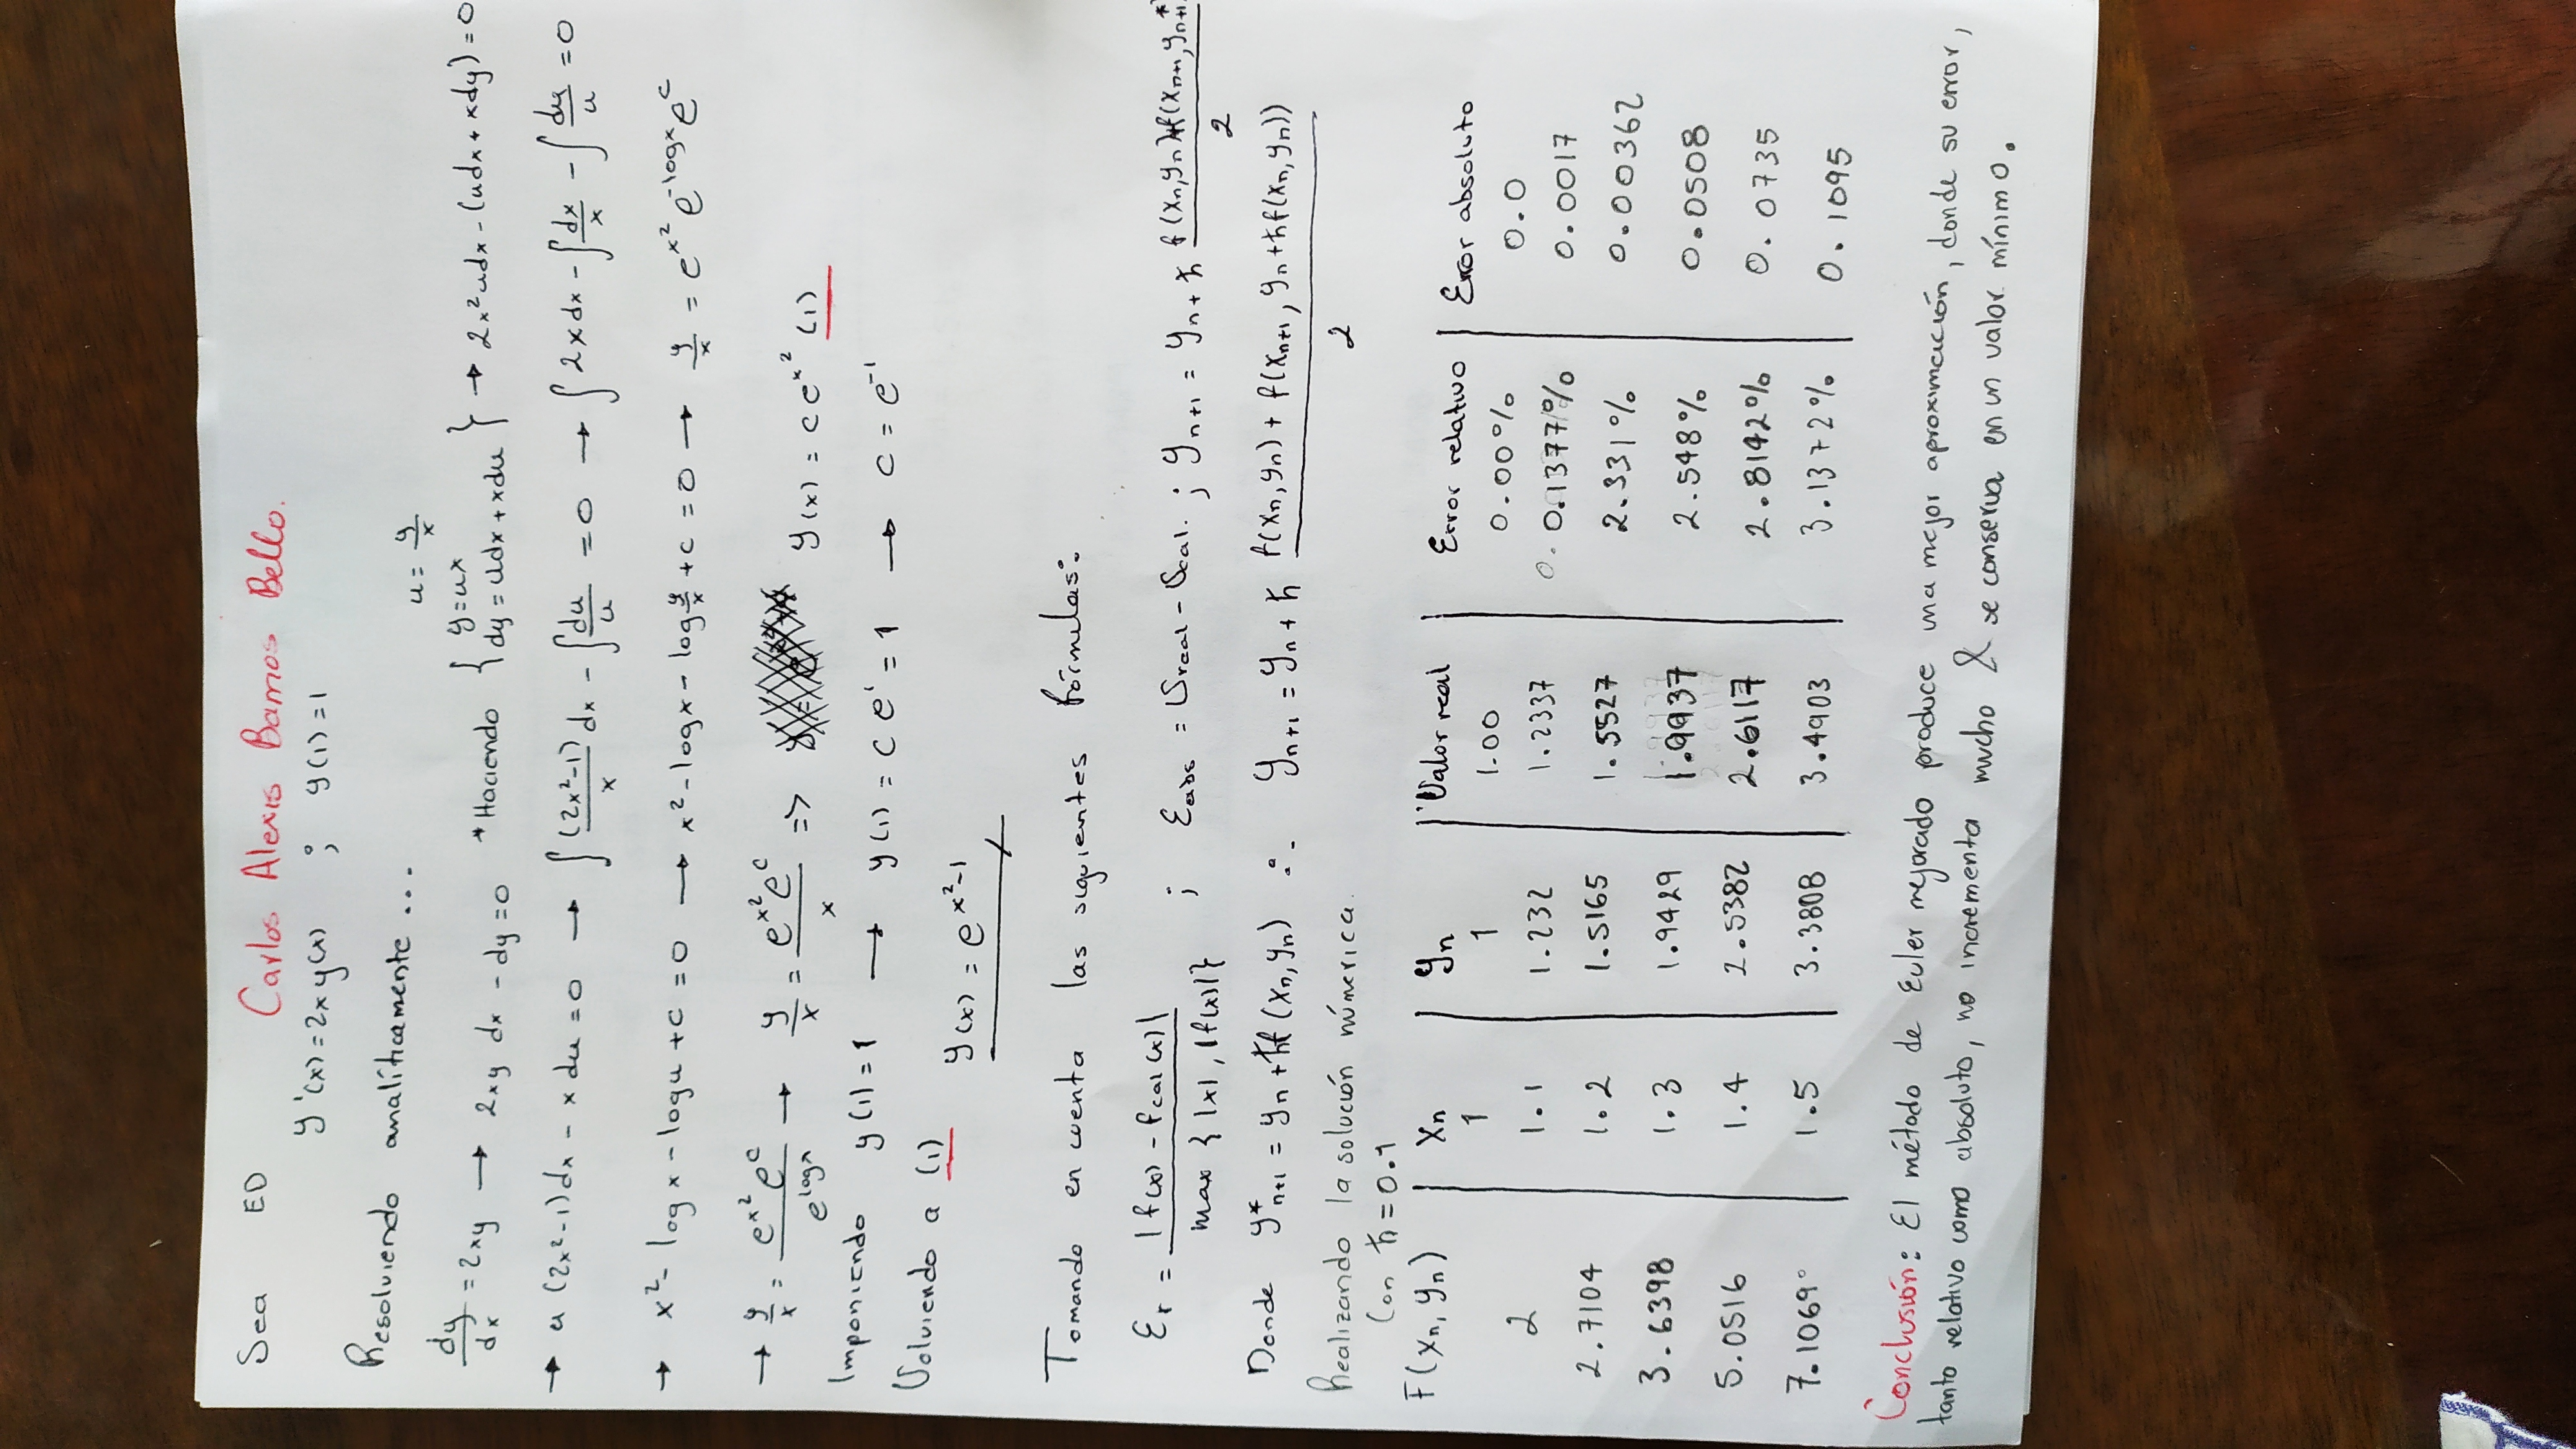 Sea ED Carlos Alexis Barros Bello.
y'(x) = 2xy(x) ; y(1) = 1
Resolviendo analíticamente ...
u = y/x
dy/dx = 2xy → 2xy dx - dy = 0 *Haciendo { y = ux dy = udx + xdu } → 2x²udx - (udx + xdy) = 0
→ u (2x²-1)dx - x du = 0 → ∫ (2x²-1)/x dx - ∫ du/u = 0 → ∫ 2x dx - ∫ dx/x - ∫ du/u = 0
→ x² - log x - log u + c = 0 → x² - log x - log y/x + c = 0 → y/x = e^x² e^-logx e^c
→ y/x = e^x² e^c / e^logx → y/x = e^x² e^c / x => y(x) = c e^x² (1)
Imponiendo y(1) = 1 → y(1) = c e¹ = 1 → c = e⁻¹
Volviendo a (1)
y(x) = e^x²-1
Tomando en cuenta las siguientes fórmulas:
Er = |f(x) - fcal(x)| / max {|x|, |f(x)|} ; Eabs = Vreal - Vcal. ; yn+1 = yn + ħ f(xn,yn)+f(xn+1,y*n+1) / 2
Donde y*n+1 = yn + ħf(xn,yn) ∴ yn+1 = yn + ħ f(xn,yn) + f(xn+1, yn+ħf(xn,yn)) / 2
Realizando la solución númerica.
Con ħ = 0.1
F(xn, yn) | xn | yn | Valor real | Error relativo | Error absoluto
1 | 1 | 1.00 | 0.00% | 0.0
2 | 1.1 | 1.232 | 1.2337 | 0.1377% | 0.0017
2.7104 | 1.2 | 1.5165 | 1.5527 | 2.331% | 0.00362
3.6398 | 1.3 | 1.9429 | 1.9937 | 2.548% | 0.0508
5.0516 | 1.4 | 2.5382 | 2.6117 | 2.8142% | 0.0735
7.1069 | 1.5 | 3.3808 | 3.4903 | 3.1372% | 0.1095
Conclusión: El método de Euler mejorado produce una mejor aproximación, donde su error,
tanto relativo como absoluto, no incrementa mucho & se conserva en un valor mínimo.